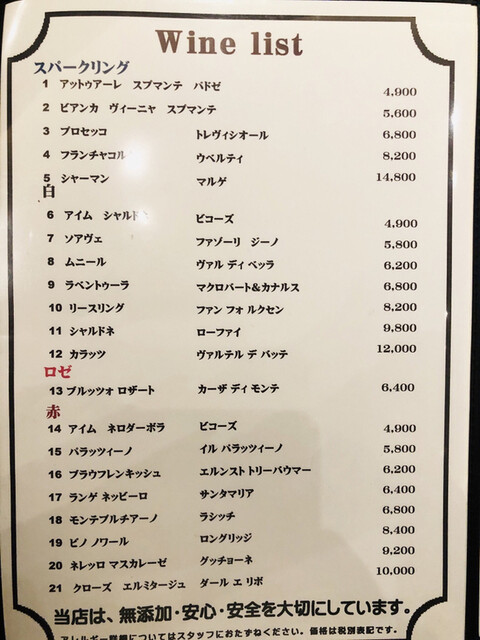 Wine list
スパークリング
1 アットゥアーレ スプマンテ パドゼ 4,900
2 ビアンカ ヴィーニャ スプマンテ 5,600
3 プロセッコ トレヴィジオール 6,800
4 フランチャコル ウベルティ 8,200
5 シャーマン マルゲ 14,800
白
6 アイム シャルド ビコーズ 4,900
7 ソアヴェ ファゾーリ ジーノ 5,800
8 ムニール ヴァル ディ ベッラ 6,200
9 ラベントゥーラ マクロバート&カナルス 6,800
10 リースリング ファン フォ ルクセン 8,200
11 シャルドネ ローファイ 9,800
12 カラッツ ヴァルテル デ バッテ 12,000
ロゼ
13 ブルッツォ ロザート カーザ ディ モンテ 6,400
赤
14 アイム ネロダーボラ ビコーズ 4,900
15 パラッツィーノ イル パラッツィーノ 5,800
16 ブラウフレンキッシュ エルンスト トリーバウマー 6,200
17 ランゲ ネッビーロ サンタマリア 6,400
18 モンテプルチアーノ ラシッチ 6,800
19 ピノ ノワール ロングリッジ 8,400
20 ネレッロ マスカレーゼ グッチョーネ 9,200
21 クローズ エルミタージュ ダール エ リボ 10,000
当店は、無添加・安心・安全を大切にしています。
アレルギー詳細についてはスタッフにおたずねください。価格は税別表記です。